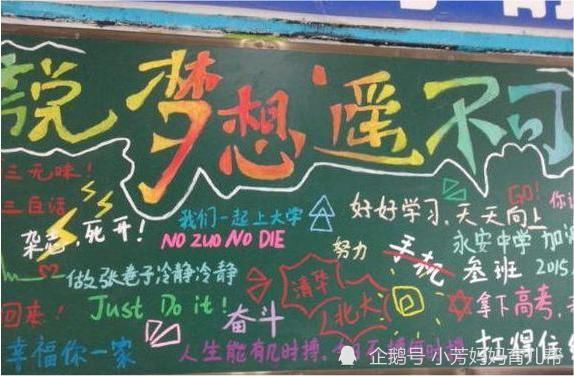 说梦想遥不可
三无味！
三百话
杂志，死开！
我们一起上大学
NO ZUO NO DIE
好好学习，天天向上
GO!
努力
永安中学 加
手机
叁班 2015.
做张卷子冷静冷静
清华
北大
回来！
Just Do it!
奋斗
拿下高考，
幸福你一家
人生能有几时搏，
打得住
企鹅号 小芳妈妈育儿帮